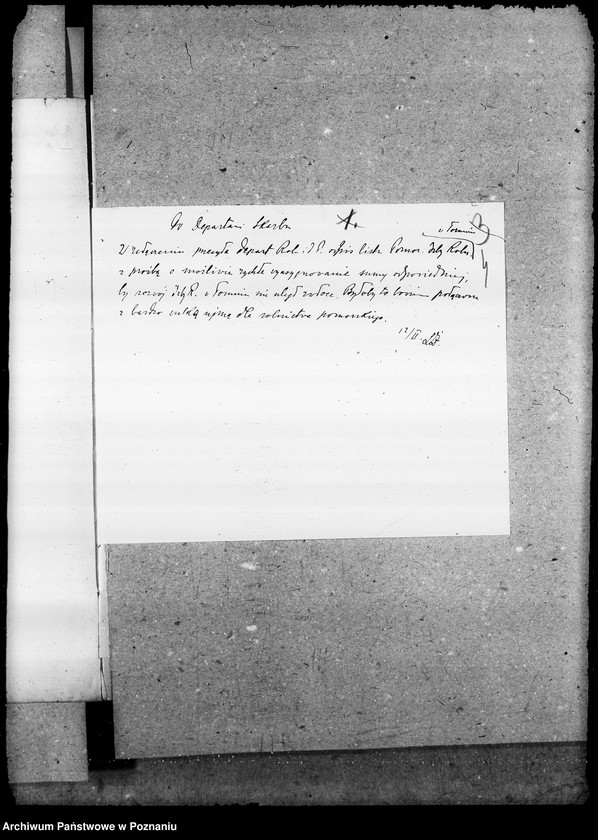 Do Departam. Skarbu
w Toruniu
W załączeniu przesyła Depart Rol. i D.P. odpis listu Pomor. Izby Roln.
z prośbą o możliwie rychłe wyasygnowanie sumy odpowiedniej,
by rozwój Izby R. w Toruniu nie uległ zwłoce. Byłoby to bowiem połączone
z bardzo wielką ujmą dla rolnictwa pomorskiego.
12/II.
Archiwum Państwowe w Poznaniu